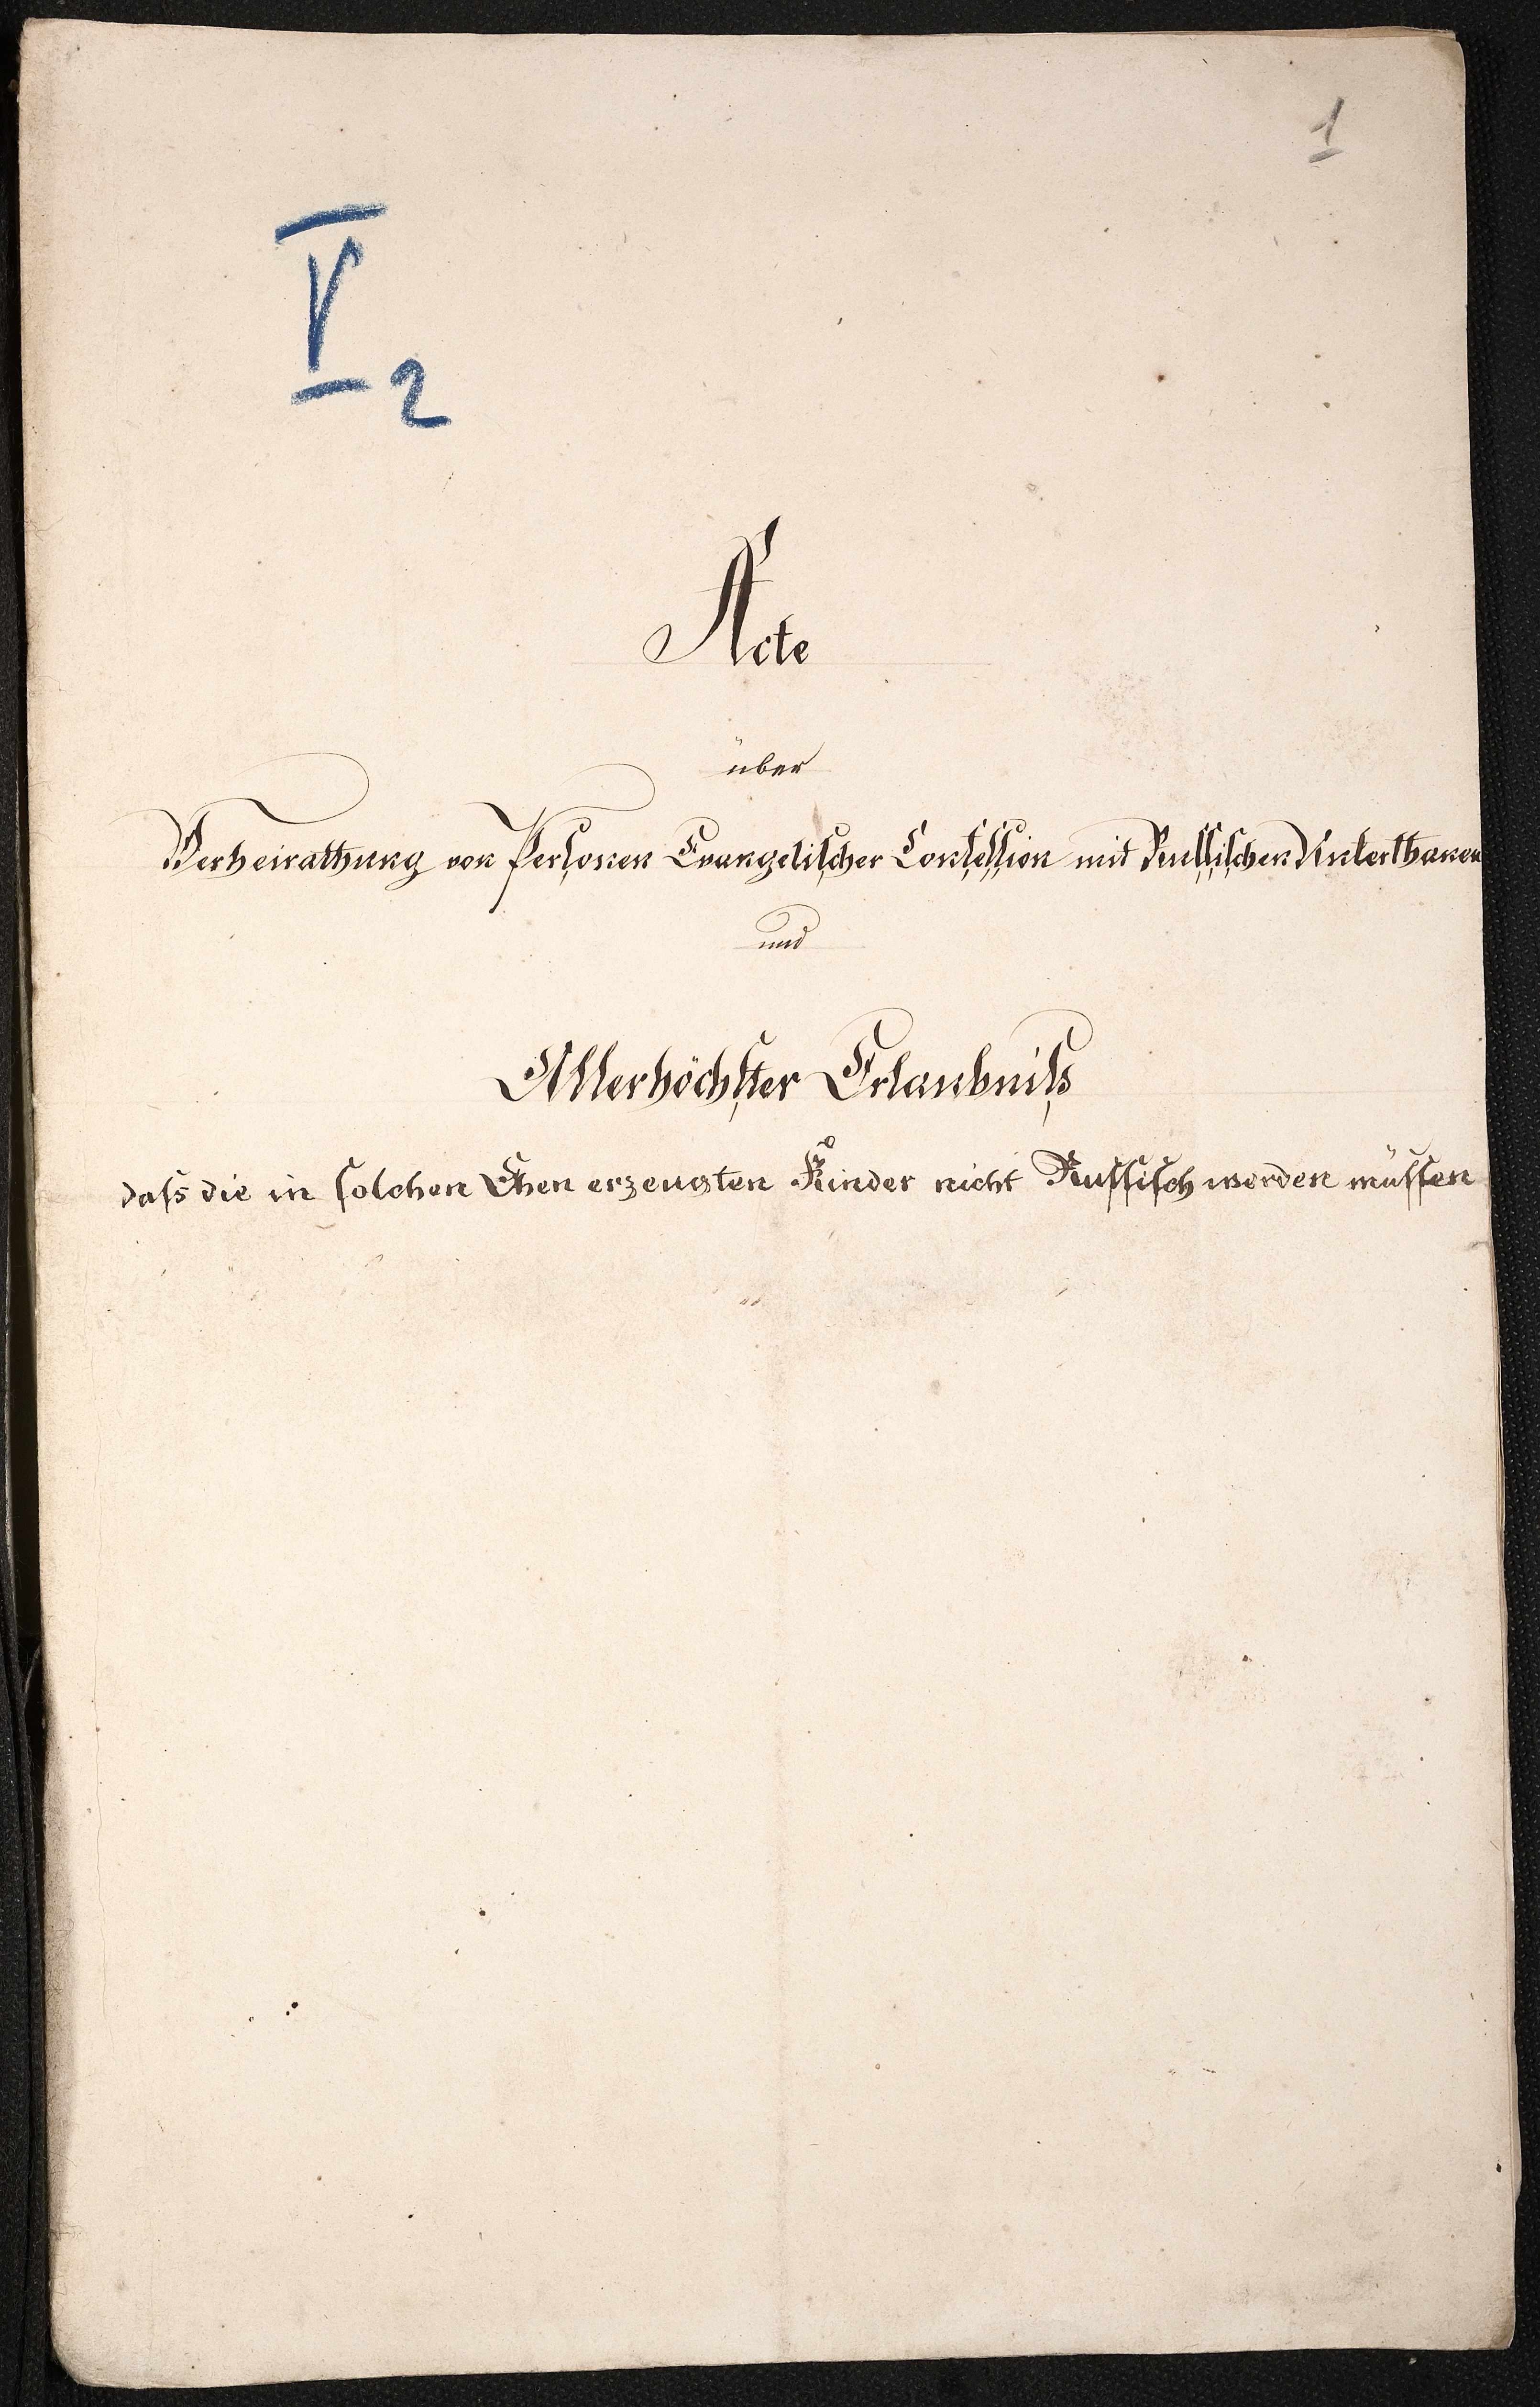 1
V 2
Acte
über
Verheirathung von Personen Evangelischer Confession mit Russischen Unterthanen
und
Allerhöchster Erlaubniß
daß die in solchen Ehen erzeugten Kinder nicht Russisch werden müssen